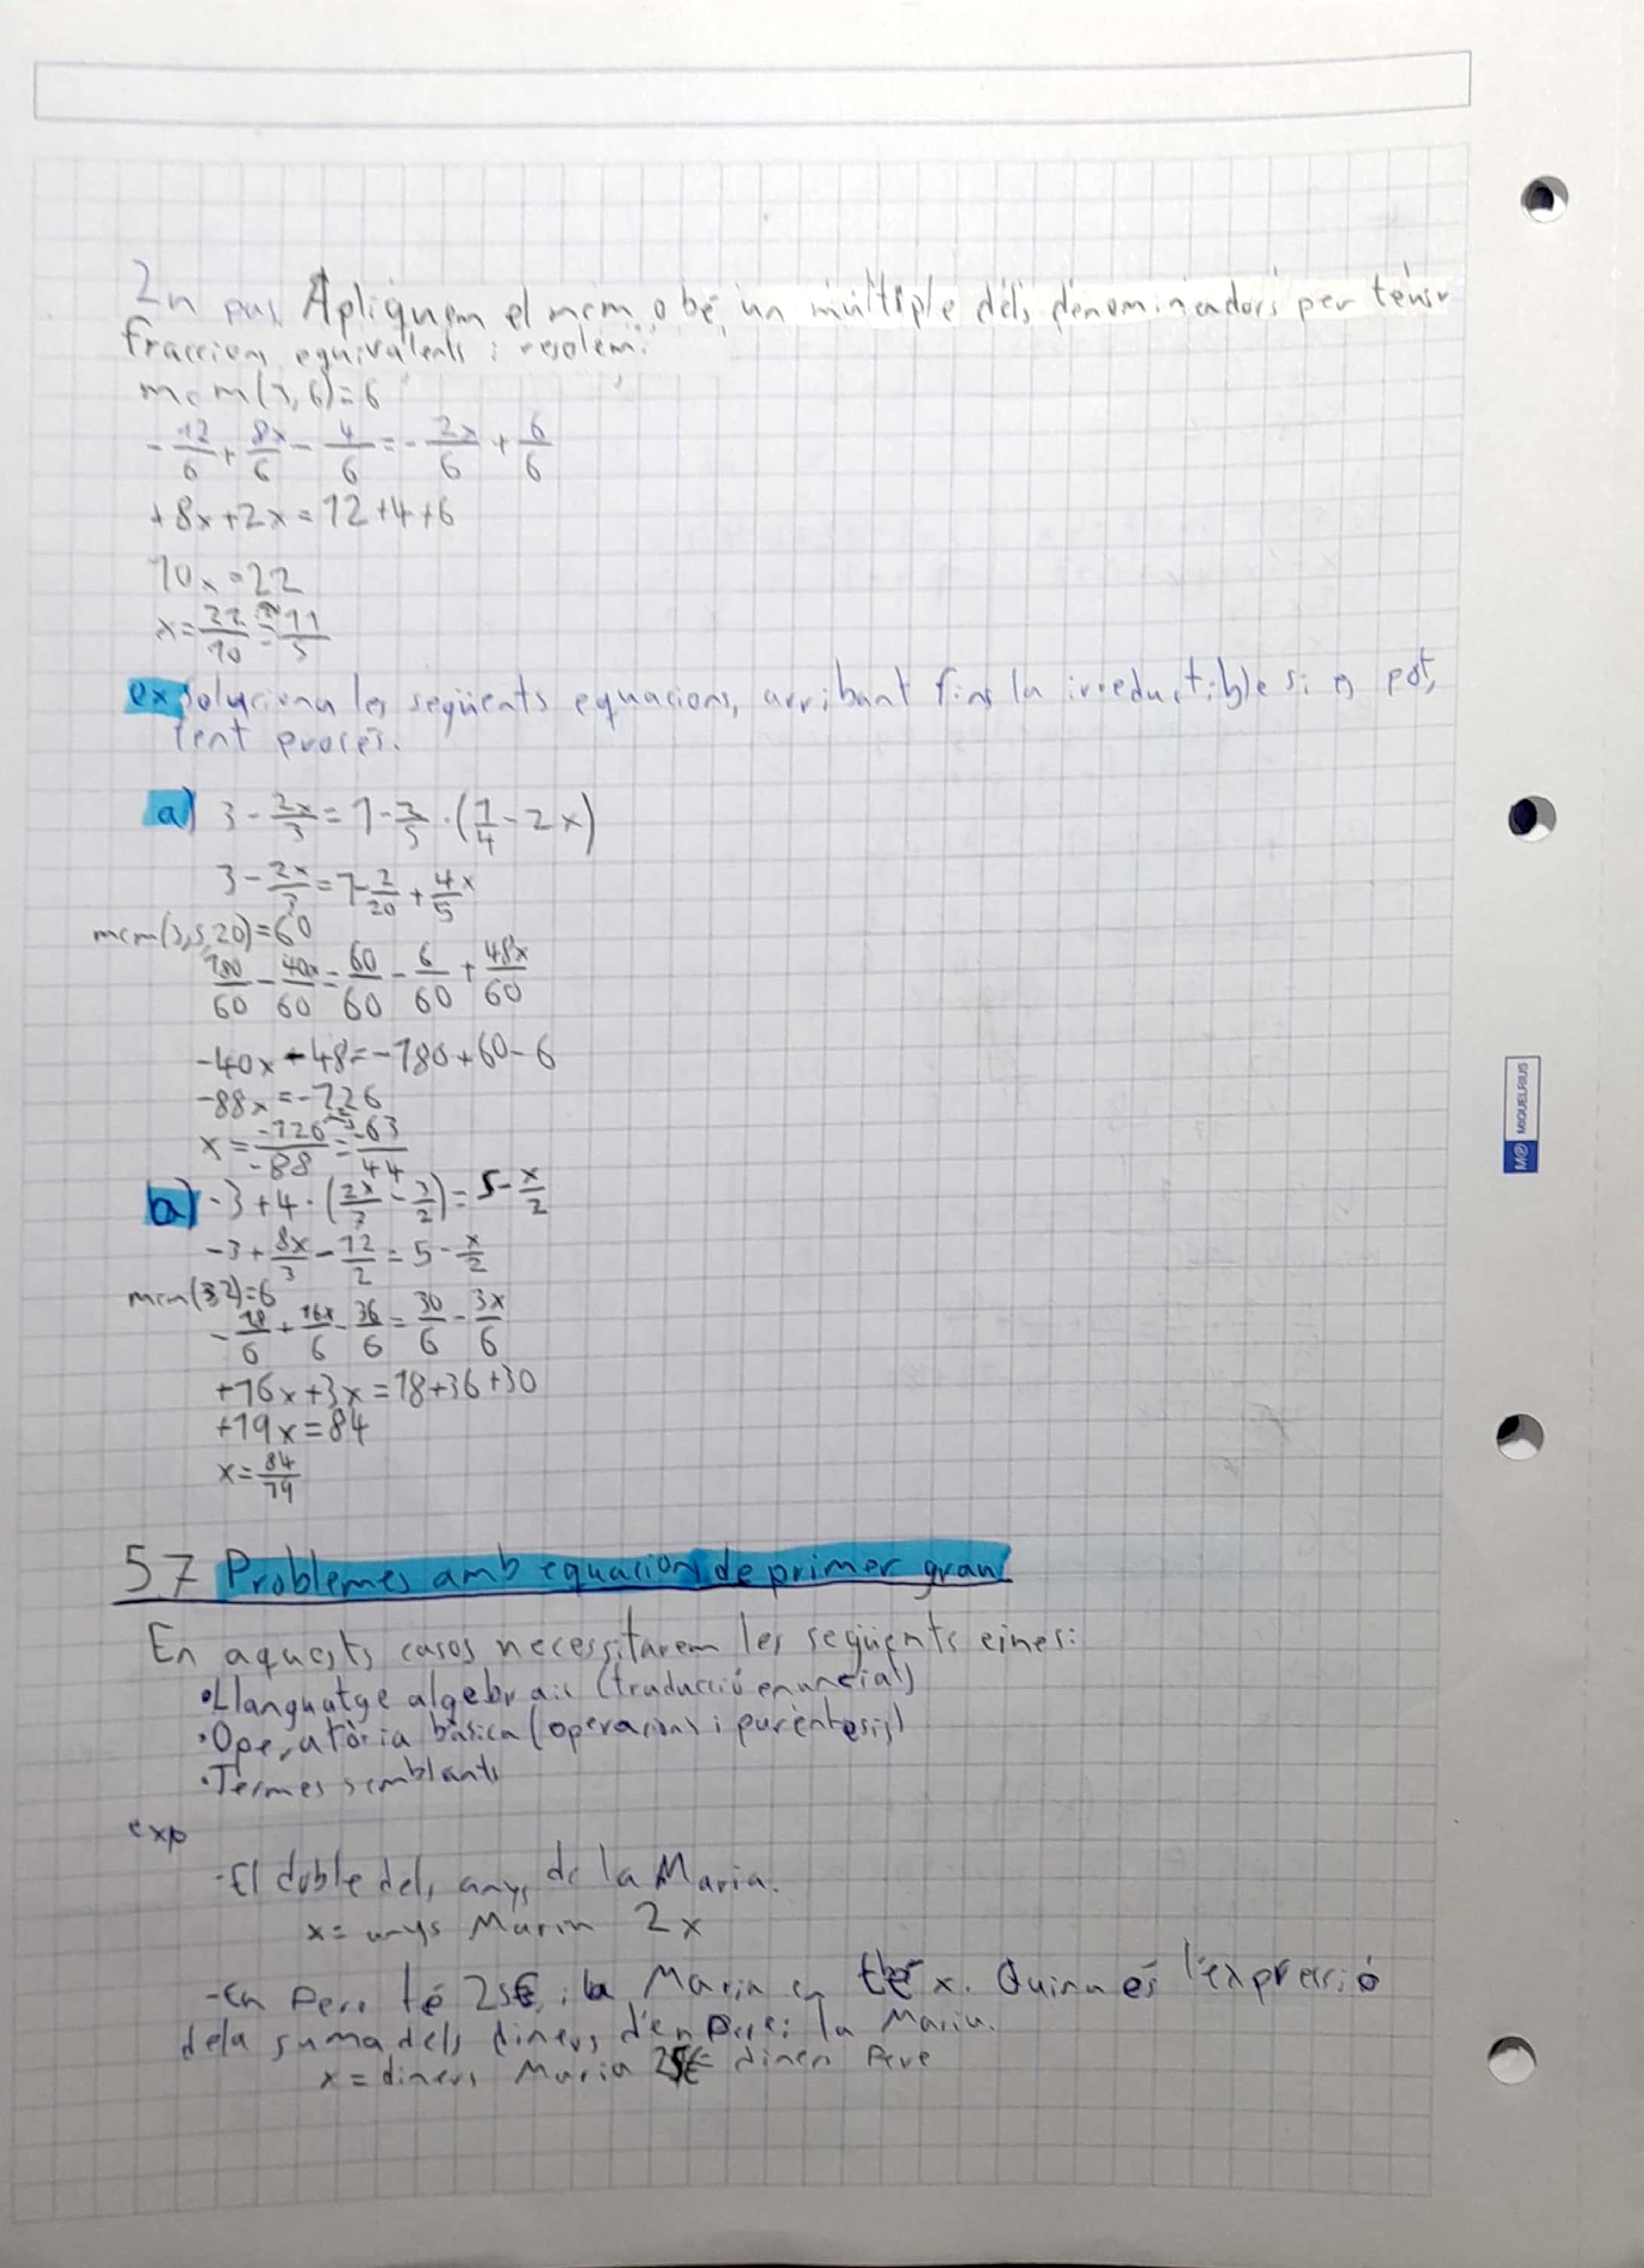 2n pas Apliquem el mcm o bé un múltiple dels denominadors per tenir
fraccions equivalents i resolem.
mcm(3,6)=6
-12/6 + 8x/6 - 4/6 = -2x/6 + 6/6
+8x+2x=12+4+6
10x=22
x=22/10=11/5
ex Soluciona les següents equacions, arribant fins la irreductible si es pot,
fent procés.
a) 3-2x/3=1-2/5·(1/4-2x)
3-2x/3=1-2/20+4x/5
mcm(3,5,20)=60
180/60-40x/60=60/60-6/60+48x/60
-40x-48=-180+60-6
-88x=-126
x=-126/-88=-63/44
b) -3+4·(2x/3-3/2)=5-x/2
-3+8x/3-12/2=5-x/2
mcm(3,2)=6
-18/6+16x/6-36/6=30/6-3x/6
+16x+3x=18+36+30
+19x=84
x=84/19
5.7 Problemes amb equacions de primer grau
En aquests casos necessitarem les següents eines:
•Llenguatge algebraic (traducció enunciat)
•Operatòria bàsica (operacions i parèntesis)
•Termes semblants
exp
-El doble dels anys de la Maria.
x= anys Maria 2x
-En Pere té 25€ i la Maria en té x. Quina és l'expressió
de la suma dels diners d'en Pere i la Maria.
x= diners Maria 25€ diners Pere
M® MIQUELRIUS